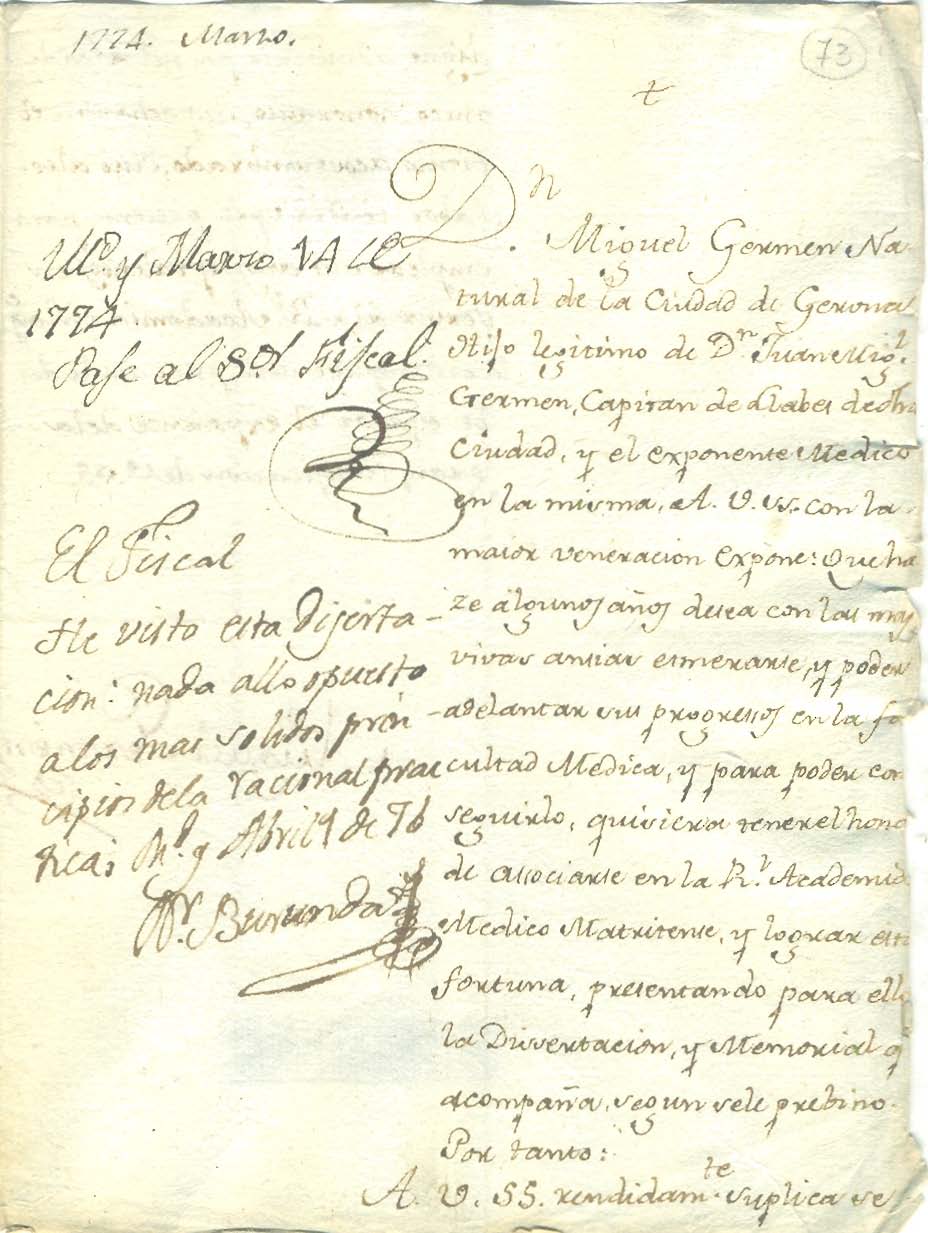 1774. Marzo.
73
+
Md. y Marzo 14 de
1774
Pase al Sor. Fiscal.
El Fiscal
He visto esta Diserta-
cion: nada allo opuesto
a los mas solidos prin-
cipios de la racional prac
tica; Md. y Abril 9 de 76
Dr. Burunda
Dn. Miguel Germen Na-
tural de la Ciudad de Gerona
Hijo legitimo de Dn. Juan Migl.
Germen, Capitan de Navet de dha
Ciudad, y el exponente Medico
en la misma, A. V. SS. con la
maior veneracion Expone: Que ha
ze algunos años desea con las mas
vivas ansias esmerarse, y poder
adelantar sus progressos en la fa
cultad Medica, y para poder con
seguirlo, quisiera tener el hono
de associarse en la Rl. Academia
Medico Matritense, y lograr esta
fortuna, presentando para ello
la Dissertacion, y Memorial q
acompaña, segun sele prebino.
Por tanto:
A. V. SS. rendidamte. suplica se